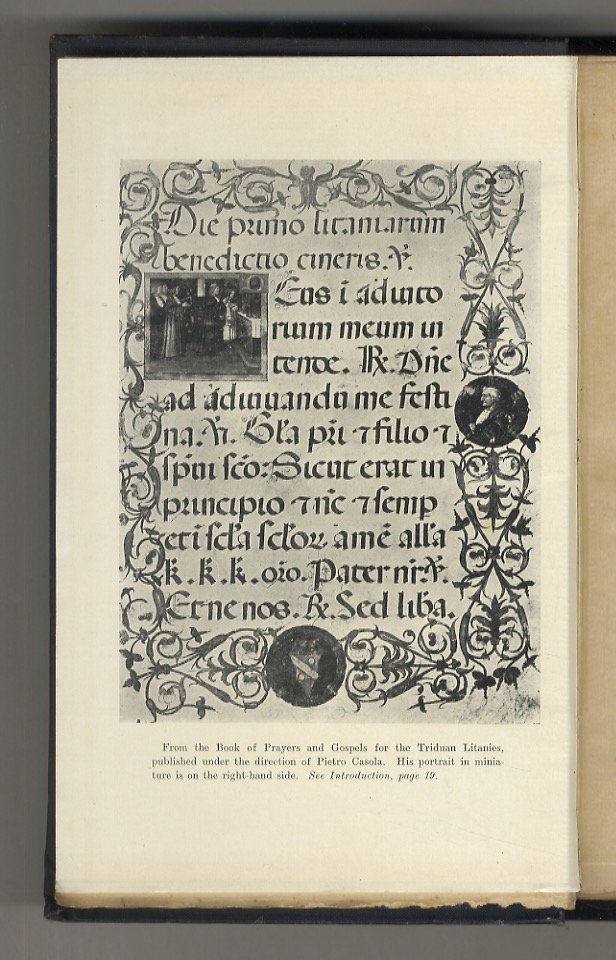 Die primo litaniarum
benedictio cineris. ℣.
Eus ī adiuto
rium meum in
tende. ℟. Dn̄e
ad adiuuandū me festi
na. ℣. Gl̄a pr̄i ⁊ filio ⁊
sp̄ui sc̄o: Sicut erat in
principio ⁊ nc̄ ⁊ semp
et ī scl̄a scl̄oꝝ amē all̄a
k̄. k̄. k̄. or̄o. Pater nr̄. ℣.
Et ne nos. ℟. Sed liba.
From the Book of Prayers and Gospels for the Triduan Litanies,
published under the direction of Pietro Casola. His portrait in minia-
ture is on the right-hand side. See Introduction, page 19.